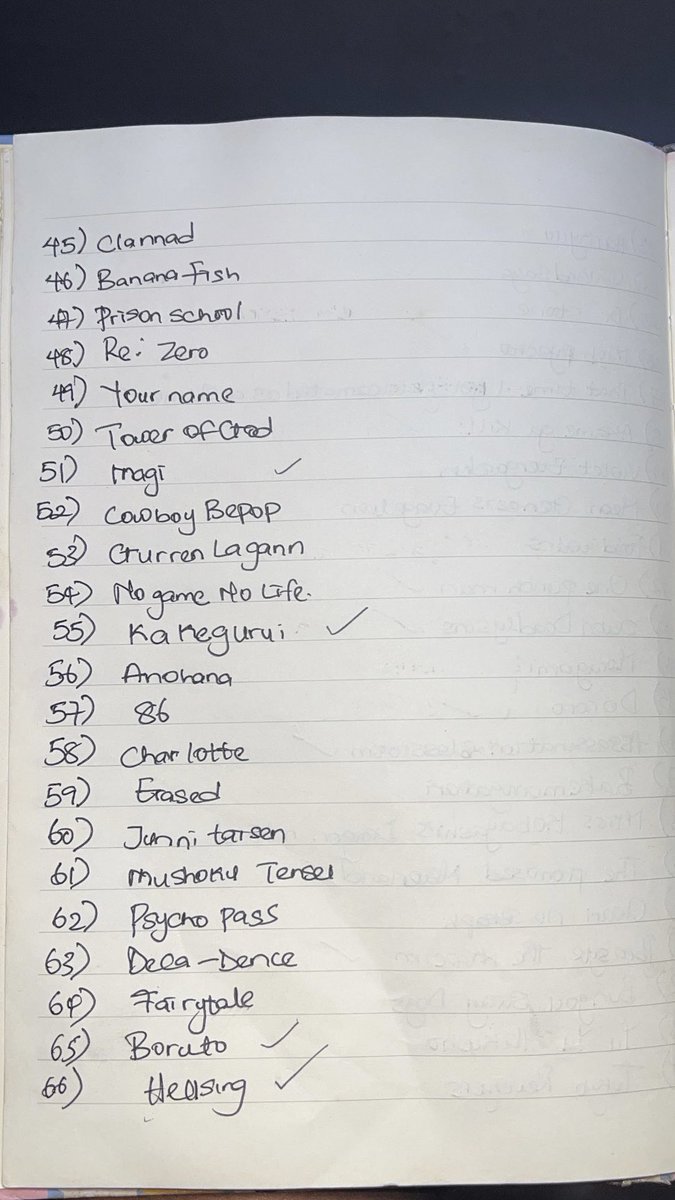 45) Clannad
46) Banana fish
47) Prison school
48) Re: Zero
49) Your name
50) Tower of God
51) Magi ✓
52) Cowboy Bepop
53) Gurren Lagann
54) No game No Life.
55) Kakegurui ✓
56) Anohana
57) 86
58) Charlotte
59) Erased
60) Junni tarsen
61) Mushoku Tensei
62) Psycho pass
63) Deca-Dence
64) Fairytale
65) Boruto ✓
66) Hellsing ✓